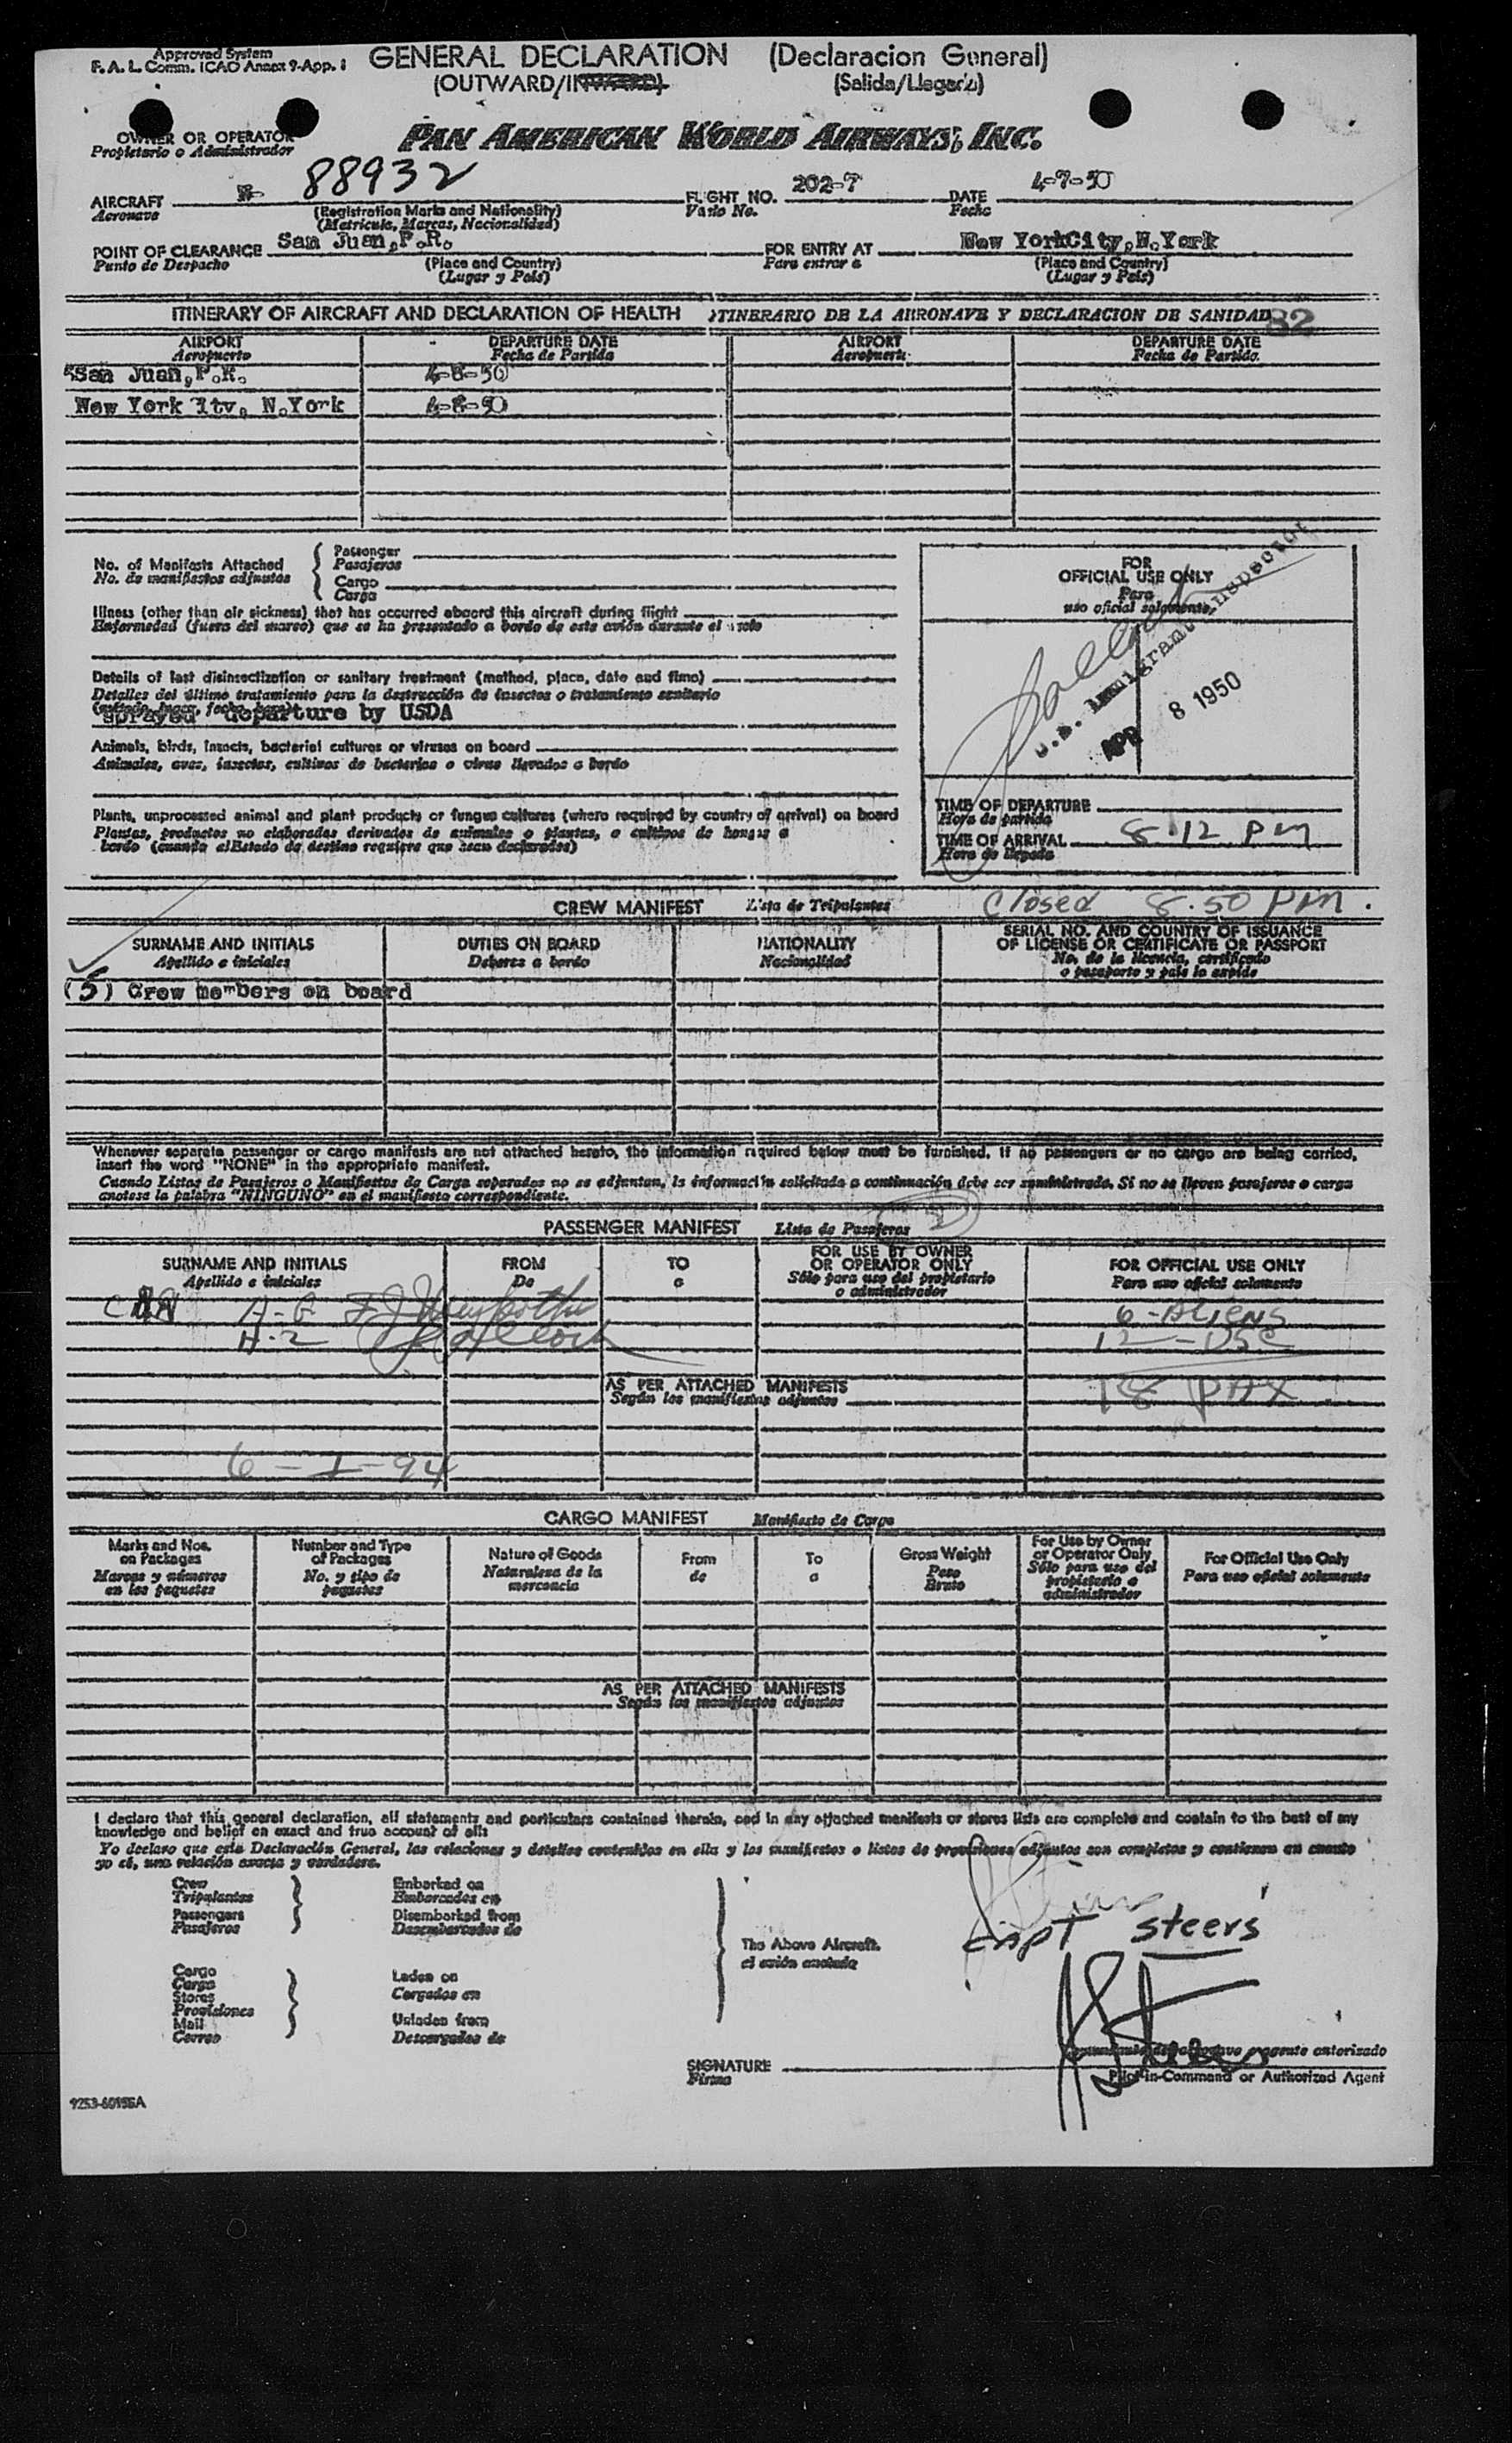 Approved System
F. A. L. Comm. ICAO Annex 9-App. 1
GENERAL DECLARATION (Declaracion General)
(OUTWARD/INWARD) (Salida/Llegada)
OWNER OR OPERATOR
Propietario o Administrador
PAN AMERICAN WORLD AIRWAYS, INC.
AIRCRAFT N- 88932 FLIGHT NO. 202-7 DATE 4-7-50
Aeronave (Registration Marks and Nationality) Vuelo No. Fecha
(Matricula, Marcas, Nacionalidad)
POINT OF CLEARANCE San Juan,P.R. FOR ENTRY AT New YorkCity,N.York
Punto de Despacho (Place and Country) Para entrar a (Place and Country)
(Lugar y País) (Lugar y País)
ITINERARY OF AIRCRAFT AND DECLARATION OF HEALTH ITINERARIO DE LA AERONAVE Y DECLARACION DE SANIDAD 82
AIRPORT DEPARTURE DATE AIRPORT DEPARTURE DATE
Aeropuerto Fecha de Partida Aeropuerto Fecha de Partida
San Juan,P.R. 4-8-50
New York ity, N.York 4-8-50
No. of Manifests Attached
No. de manifiestos adjuntos
Passenger
Pasajeros
Cargo
Carga
Illness (other than air sickness) that has occurred aboard this aircraft during flight
Enfermedad (fuera del mareo) que se ha presentado a bordo de este avión durante el vuelo
Details of last disinsectization or sanitary treatment (method, place, date and time)
Detalles del último tratamiento para la destrucción de insectos o tratamiento sanitario
(método, lugar, fecha, hora)
sprayed departure by USDA
Animals, birds, insects, bacterial cultures or viruses on board
Animales, aves, insectos, cultivos de bacterias o virus llevados a bordo
Plants, unprocessed animal and plant products or fungus cultures (where required by country of arrival) on board
Plantas, productos no elaborados derivados de animales o plantas, o cultivos de hongos a
bordo (cuando el Estado de destino requiere que sean declarados)
FOR
OFFICIAL USE ONLY
Para
uso oficial solamente
U.S. Immigrant Inspector
APR 8 1950
TIME OF DEPARTURE
Hora de partida
TIME OF ARRIVAL 8.12 PM
Hora de llegada
Closed 8.50 PM.
CREW MANIFEST Lista de Tripulantes
SURNAME AND INITIALS DUTIES ON BOARD NATIONALITY SERIAL NO. AND COUNTRY OF ISSUANCE
OF LICENSE OR CERTIFICATE OR PASSPORT
Apellido e iniciales Deberes a bordo Nacionalidad No. de la licencia, certificado
o pasaporte y país lo expide
(5) Crew members on board
Whenever separate passenger or cargo manifests are not attached hereto, the information required below must be furnished. If no passengers or no cargo are being carried,
insert the word "NONE" in the appropriate manifest.
Cuando Listas de Pasajeros o Manifiestos de Carga separados no se adjuntan, la información solicitada a continuación debe ser suministrada. Si no se llevan pasajeros o carga
anotese la palabra "NINGUNO" en el manifiesto correspondiente.
PASSENGER MANIFEST Lista de Pasajeros
SURNAME AND INITIALS FROM TO FOR USE BY OWNER
OR OPERATOR ONLY FOR OFFICIAL USE ONLY
Apellido e iniciales De a Sólo para uso del propietario
o administrador Para uso oficial solamente
6-ALIENS
H-2 12-USC
18 PAX
AS PER ATTACHED MANIFESTS
Según los manifiestos adjuntos
6-I-94
CARGO MANIFEST Manifiesto de Carga
Marks and Nos. on Packages Number and Type of Packages Nature of Goods From To Gross Weight For Use by Owner or Operator Only For Official Use Only
Marcas y números en los paquetes No. y tipo de paquetes Naturaleza de la mercancia de a Peso Bruto Sólo para uso del propietario o administrador Para uso oficial solamente
AS PER ATTACHED MANIFESTS
Según los manifiestos adjuntos
I declare that this general declaration, all statements and particulars contained therein, and in any attached manifests or stores lists are complete and contain to the best of my
knowledge and belief an exact and true account of all:
Yo declaro que esta Declaración General, las relaciones y detalles contenidos en ella y los manifiestos o listas de provisiones adjuntos son completos y contienen en cuanto
yo sé, una relación exacta y verdadera.
Crew Embarked on
Tripulantes Embarcados en
Passengers Disembarked from
Pasajeros Desembarcados de
The Above Aircraft.
el avión anotado
Capt Steers
Cargo
Carga Laden on
Stores Cargados en
Provisiones
Mail Unladen from
Correo Descargados de
SIGNATURE
Firma
agente autorizado
Pilot-in-Command or Authorized Agent
9253-60155A